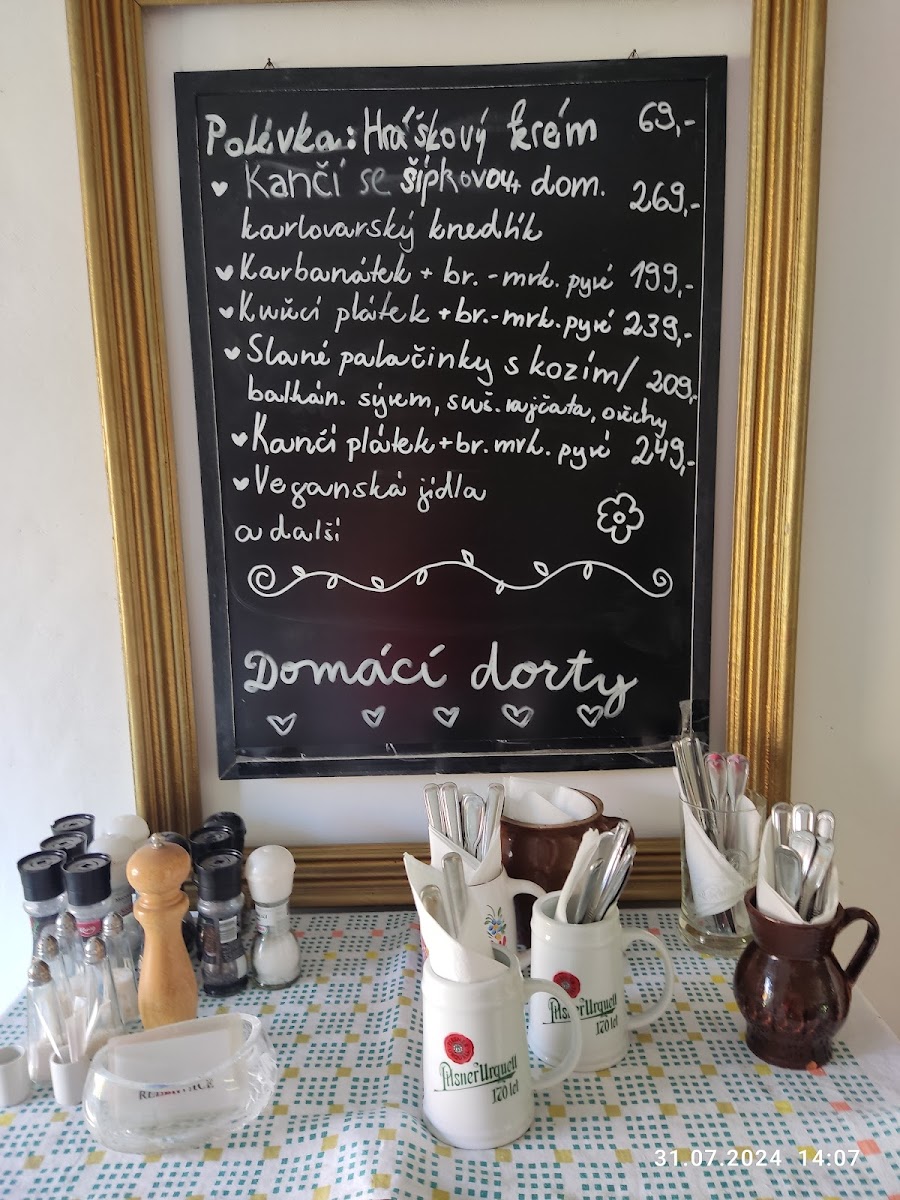 Polévka: Hráškový krém 69,-
Kančí se šípkovou, dom. 269,-
karlovarský knedlík
Karbanátek + br. - mrk. pyré 199,-
Kuřecí plátek + br. - mrk. pyré 239,-
Slané palačinky s kozím/ 209,-
balkán. sýrem, suš. rajčata, ořechy
Kančí plátek + br. mrk. pyré 249,-
Veganská jídla
a další
Domácí dorty
Pilsner Urquell
170 let
Pilsner Urquell
170 let
31.07.2024 14:07